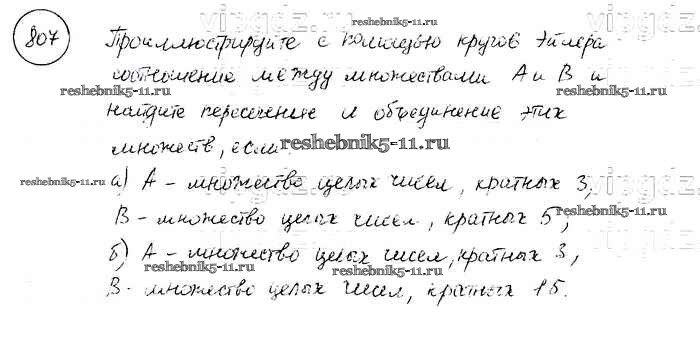 807
Проиллюстрируйте с помощью кругов Эйлера
соотношение между множествами A и B и
найдите пересечение и объединение этих
множеств, если:
а) A - множество целых чисел, кратных 3,
B - множество целых чисел, кратных 5;
б) A - множество целых чисел, кратных 3,
B - множество целых чисел, кратных 15.
vipgdz.
reshebnik5-11.ru
reshebnik5-11.ru
reshebnik5-11.ru
reshebnik5-11.ru
reshebnik5-11.ru
vipgdz.
reshebnik5-11.ru
reshebnik5-11.ru
reshebnik5-11.ru